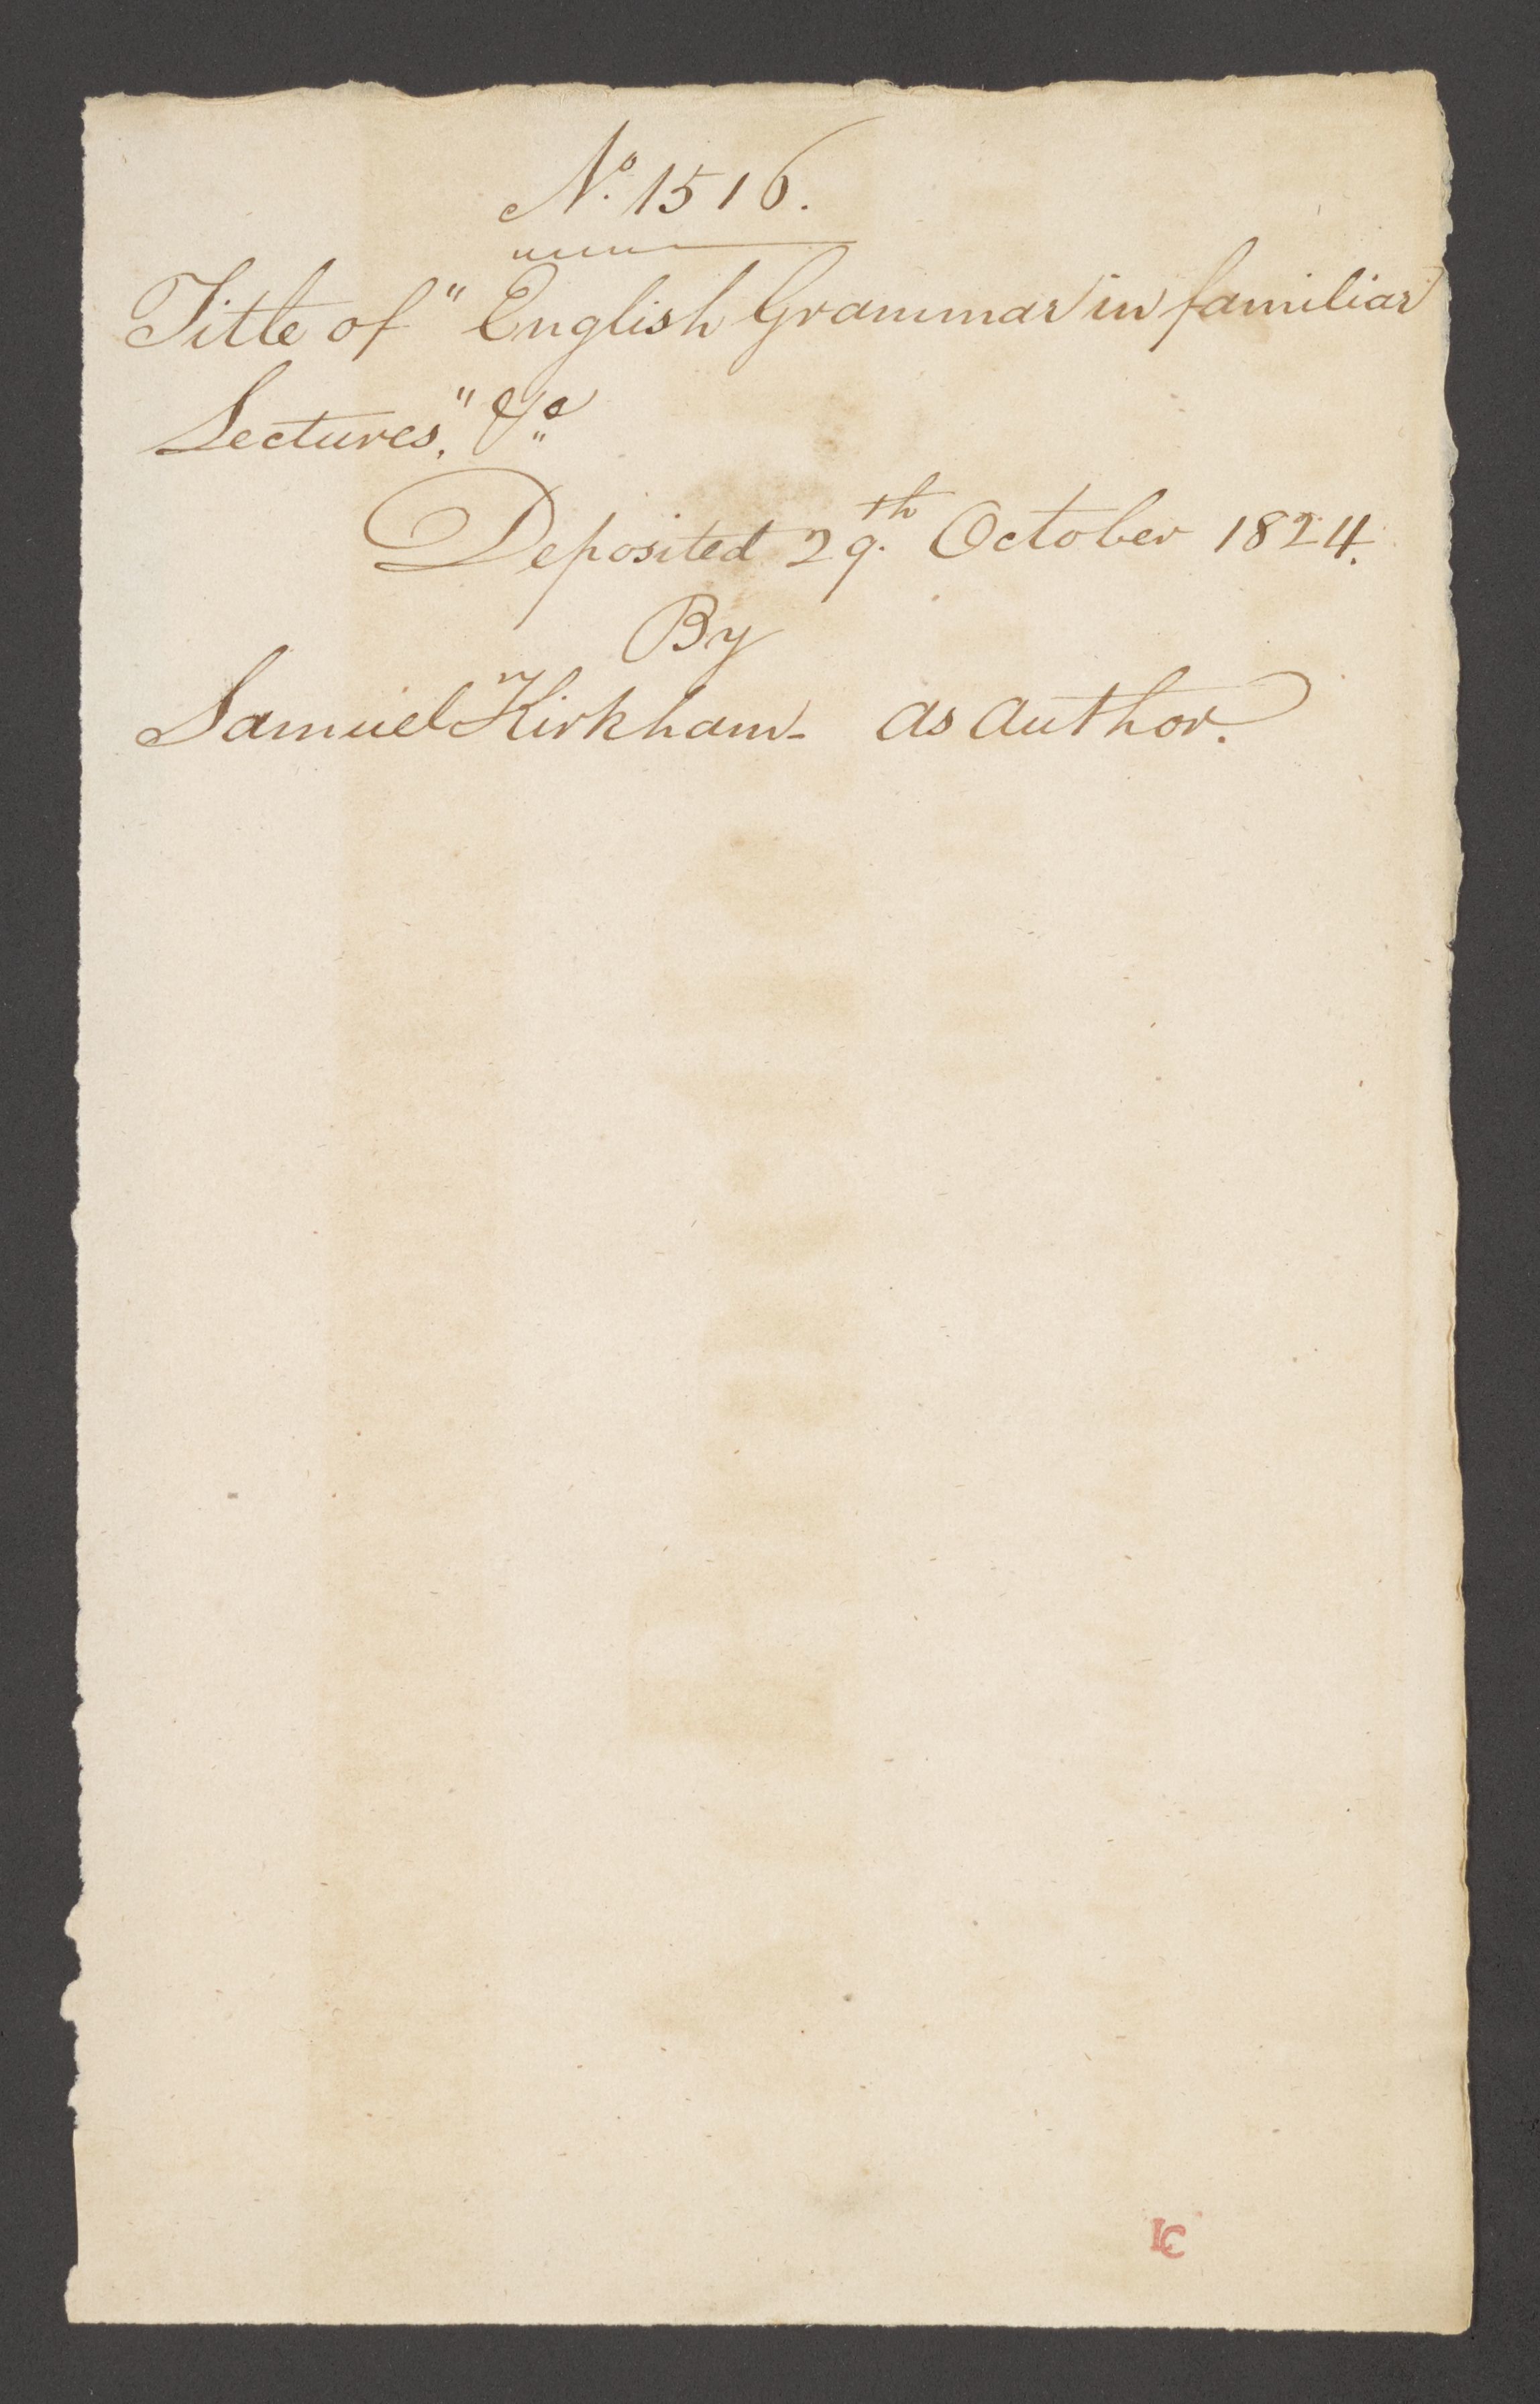 No. 1516.
Title of "English Grammar in familiar
Lectures," &c
Deposited 29th. October 1824.
By
Samuel Kirkham - as author.
LC